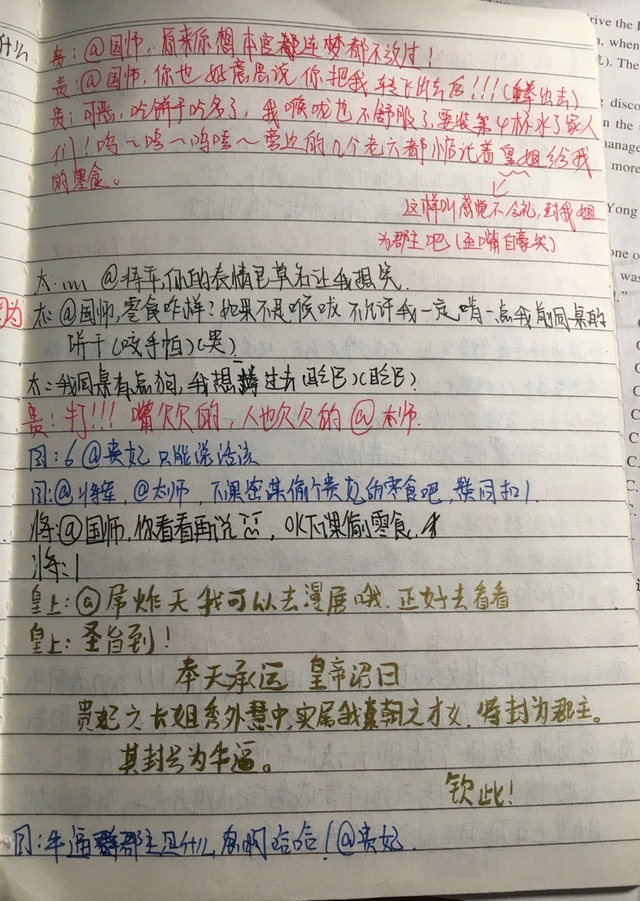 贵：@国师，原来你想本宫都连梦都不放过！
贵：@国师，你也好意思说你把我转下出去后！！！（锤出去）
贵：可恶，吃饼干吃多了，我喉咙也不舒服了，要装第4杯水了家人
们！呜～嘻～呜嘻～旁边的几个老六都惦记着皇姐给我
的零食。
这样叫感觉不合礼，封我姐
为郡主吧（歪嘴自豪笑）
太：，，，，@将军，你的表情包莫名让我想笑
太：@国师，零食咋样？如果不是喉咙不允许我一定啃一点我前同桌的
饼干（咬手帕）（哭）
太：我同桌有点狗，我想 过去
贵：打！！！嘴欠欠的，人也欠欠的@太师
国：6@贵妃 只能说活该
国：@将军，@太师，下课密谋偷个贵妃的零食吧，扣1
将：@国师，你看看再说，OK下课偷零食
将：1
皇上：@屌炸天 我可以去漫展哦，正好去看看
皇上：圣旨到！
奉天承运 皇帝诏曰
贵妃之长姐秀外慧中，实属我朝之才女，特封为郡主。
其封号为牛逼。
钦此！
国：牛逼郡主是什么 啊哈哈！@贵妃
为
什么
rive the
when
The
disco
manage
more
Yong
one o
was